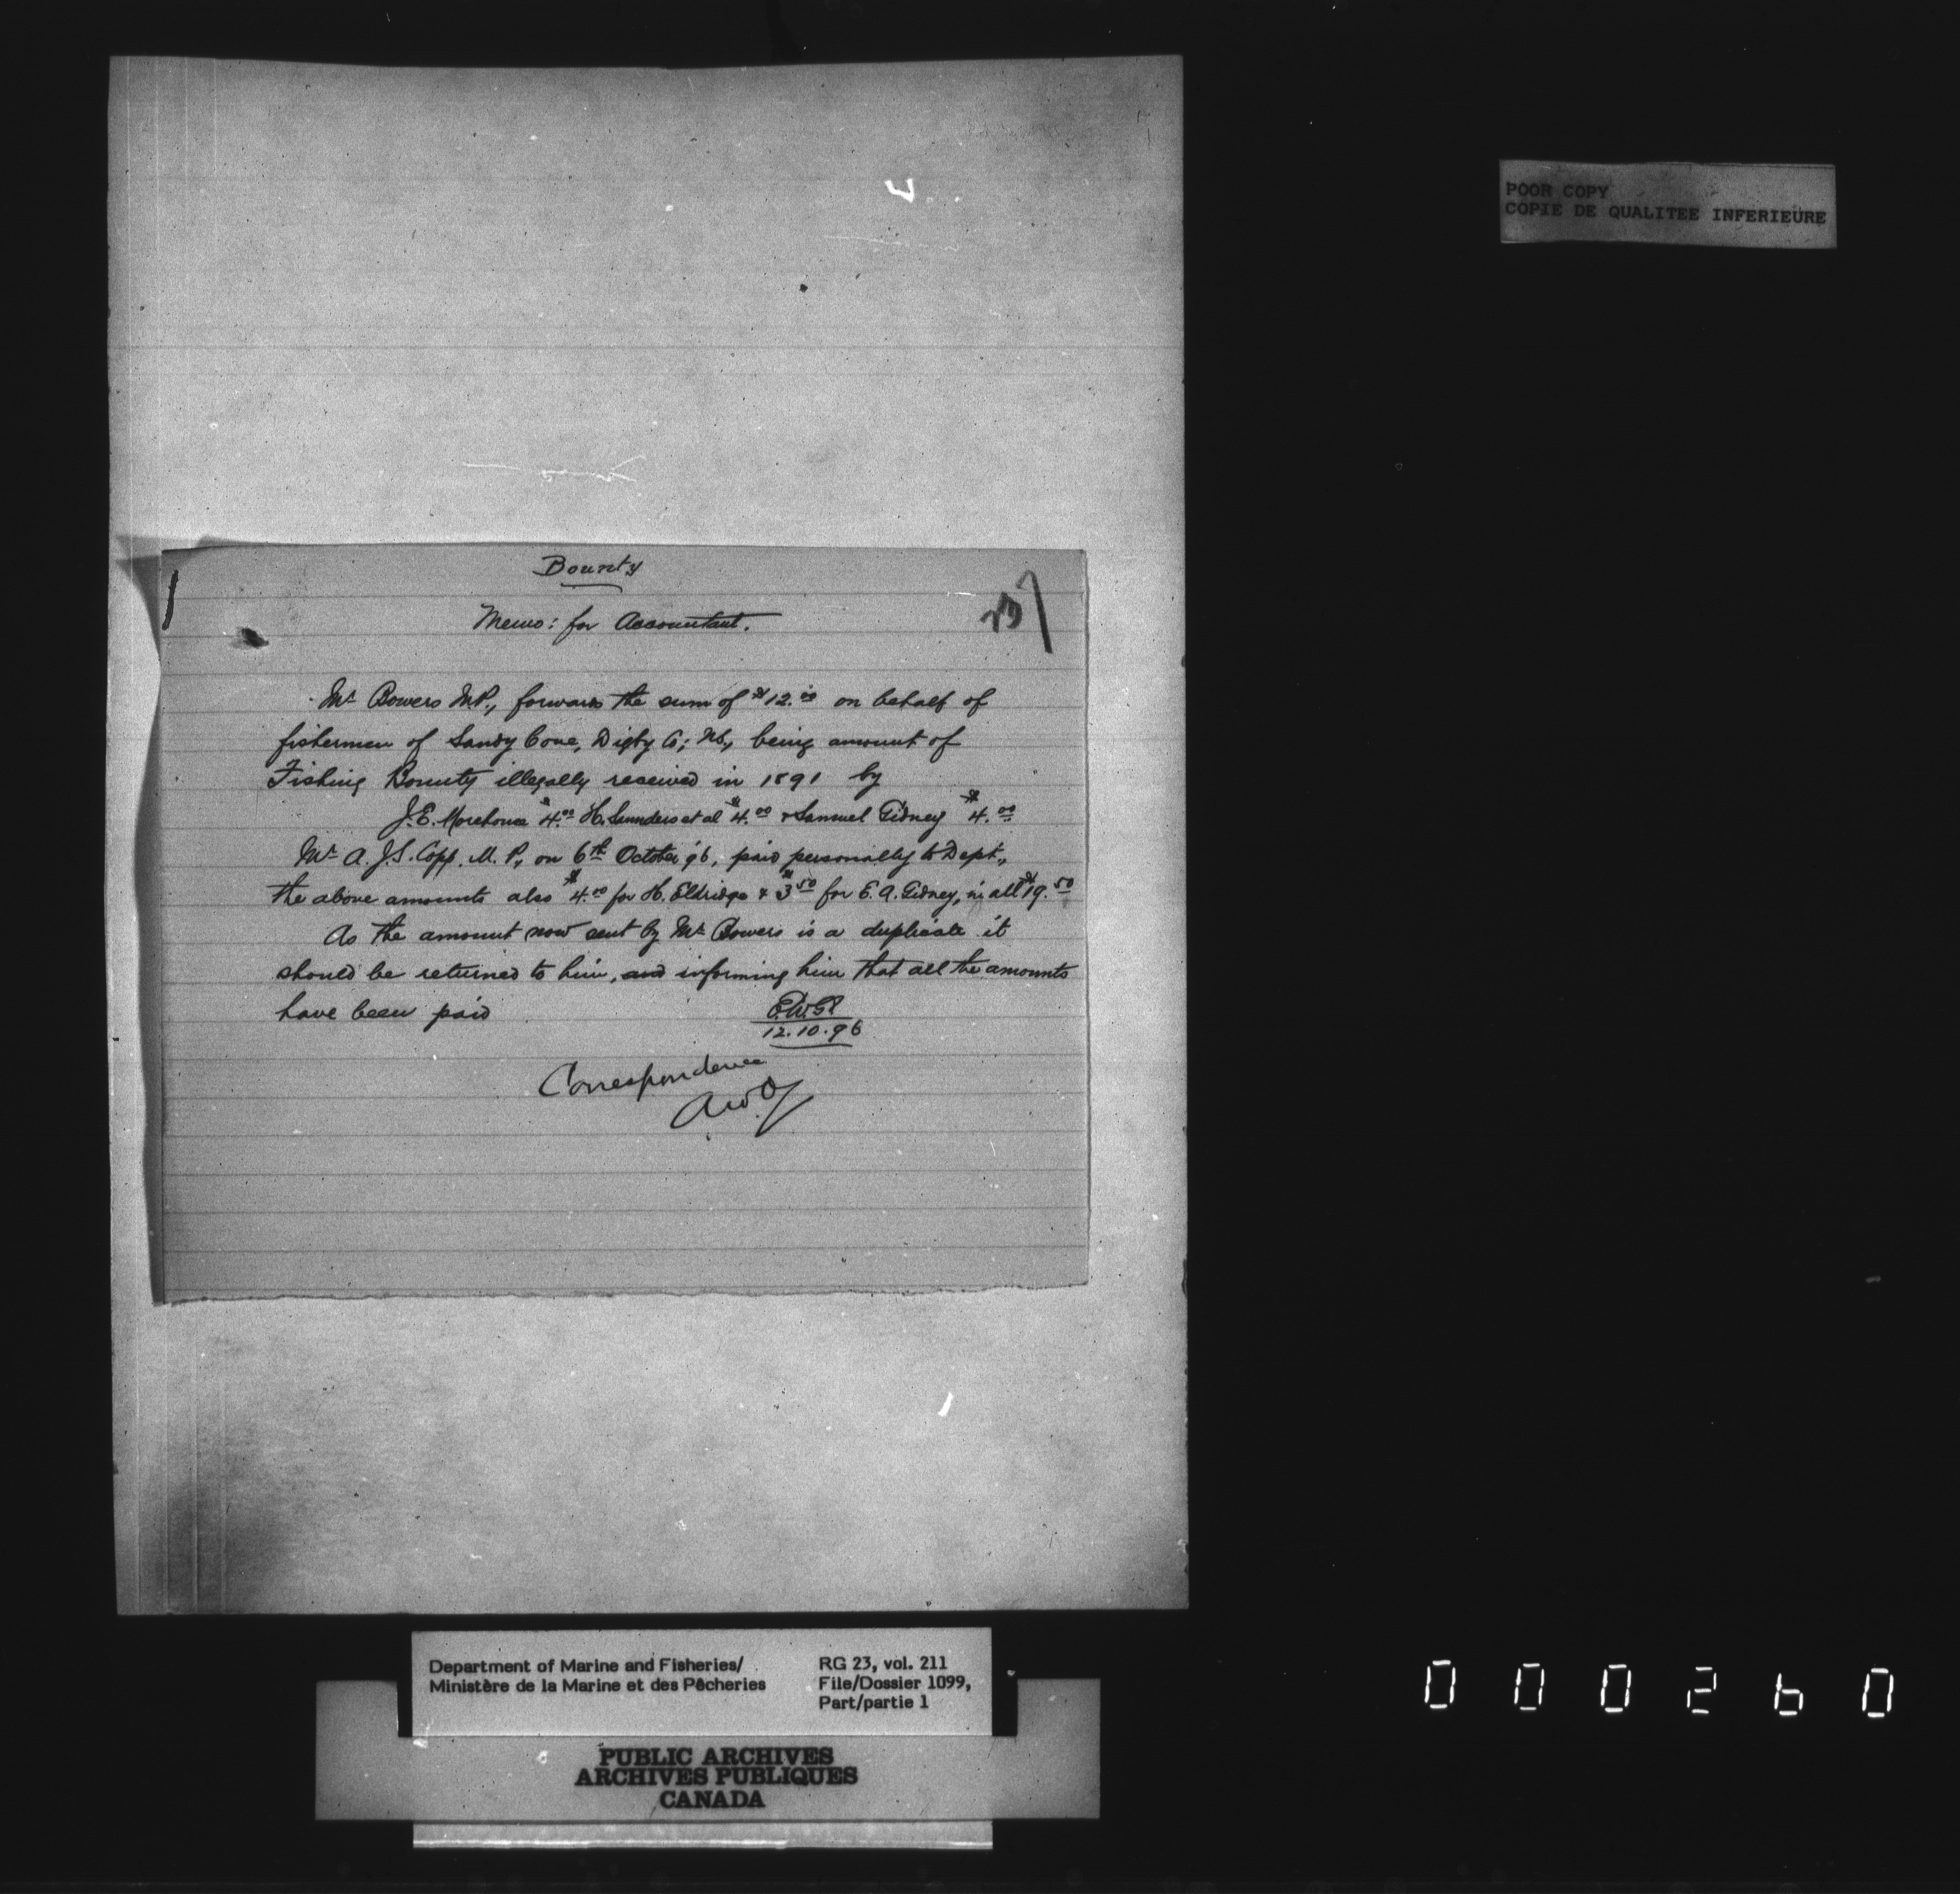 POOR COPY
COPIE DE QUALITEE INFERIEURE
Bounty
Memo: for Accountant.
Mr Bowers M.P., forwards the sum of $12.00 on behalf of
fishermen of Sandy Cove, Digby Co; N.S., being amount of
Fishing Bounty illegally received in 1891 by
J.E. Morehouse $4.00 H. Saunders et al $4.00 & Samuel Gidney $4.00
Mr A. J.S. Copp. M. P., on 6th October '96, paid personally to Dept.,
the above amounts also $4.00 for H. Eldridge & $3.50 for E. A. Gidney, in all $19.50
As the amount now sent by Mr Bowers is a duplicate it
should be returned to him, and informing him that all the amounts
have been paid
12.10.96
Correspondence
Department of Marine and Fisheries/
Ministère de la Marine et des Pêcheries
RG 23, vol. 211
File/Dossier 1099,
Part/partie 1
PUBLIC ARCHIVES
ARCHIVES PUBLIQUES
CANADA
000260